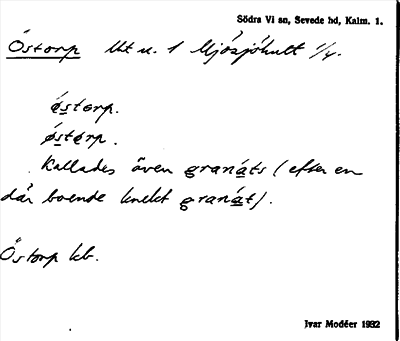 Södra Vi sn, Sevede hd, Kalm. l.
Östorp lht u. 1 Mjösjöhult 1/4.
östorp.
östorp.
Kallades även granáts (efter en
där boende knekt granát).
Östorp kb.
Ivar Modéer 1932